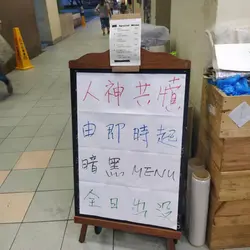 人神共憤
由即時起
暗黑MENU
全日出没